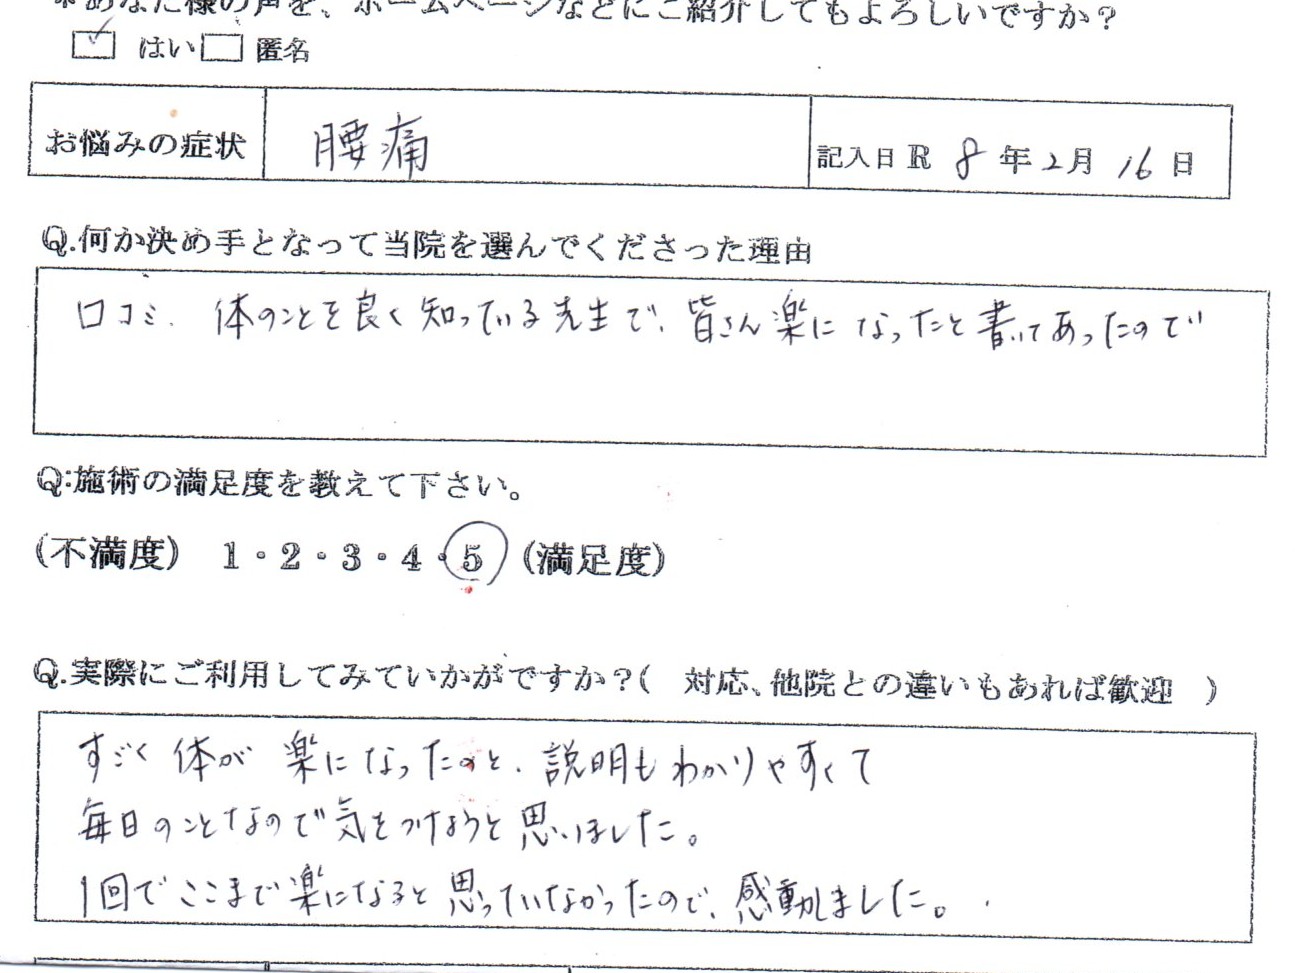 *あなた様の声を、ホームページなどにご紹介してもよろしいですか？
はい 匿名
お悩みの症状 腰痛 記入日 R 8 年 2 月 16 日
Q.何か決め手となって当院を選んでくださった理由
口コミ、体のことを良く知っている先生で、皆さん楽になったと書いてあったので
Q:施術の満足度を教えて下さい。
(不満度) 1・2・3・4・5 (満足度)
Q.実際にご利用してみていかがですか？( 対応、他院との違いもあれば歓迎 )
すごく体が楽になったのと、説明もわかりやすくて
毎日のことなので気をつけようと思いました。
1回でここまで楽になると思っていなかったので、感動しました。